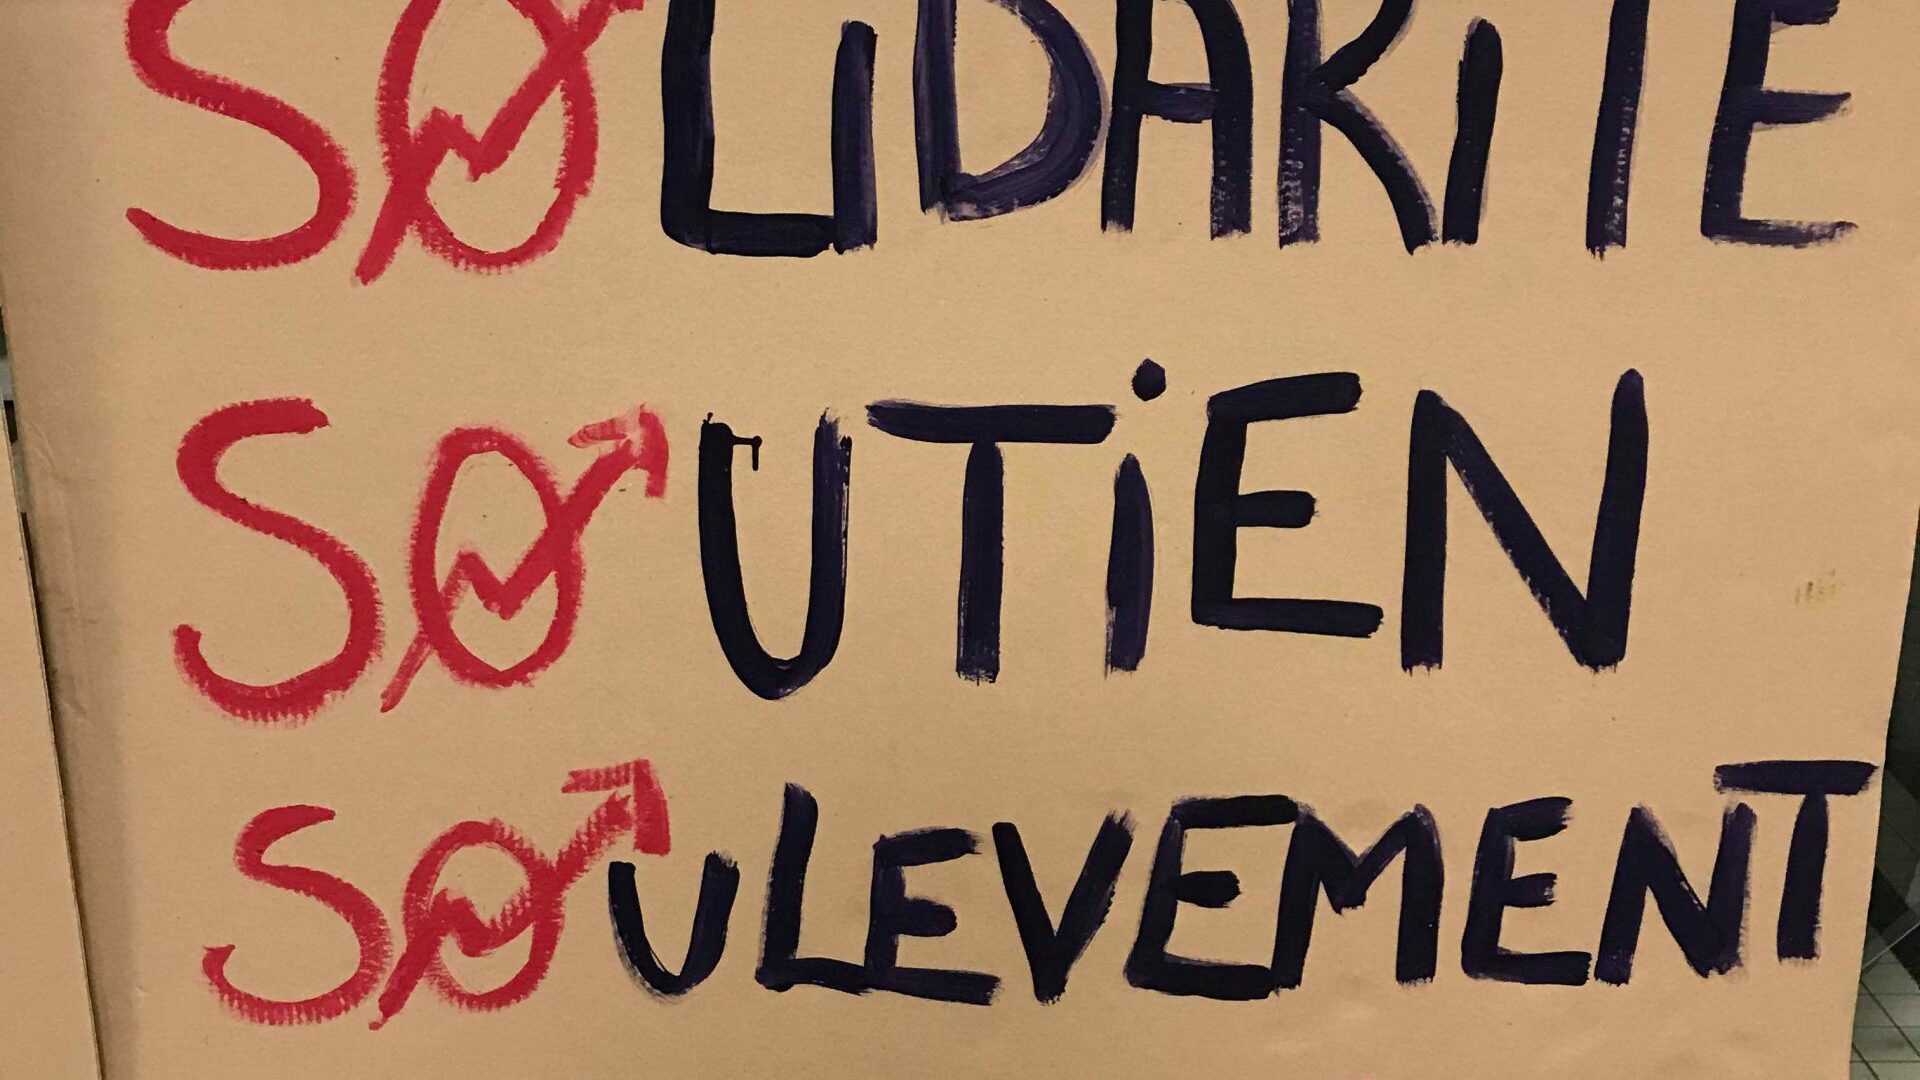 SOLIDARITE
SOUTIEN
SOULEVEMENT